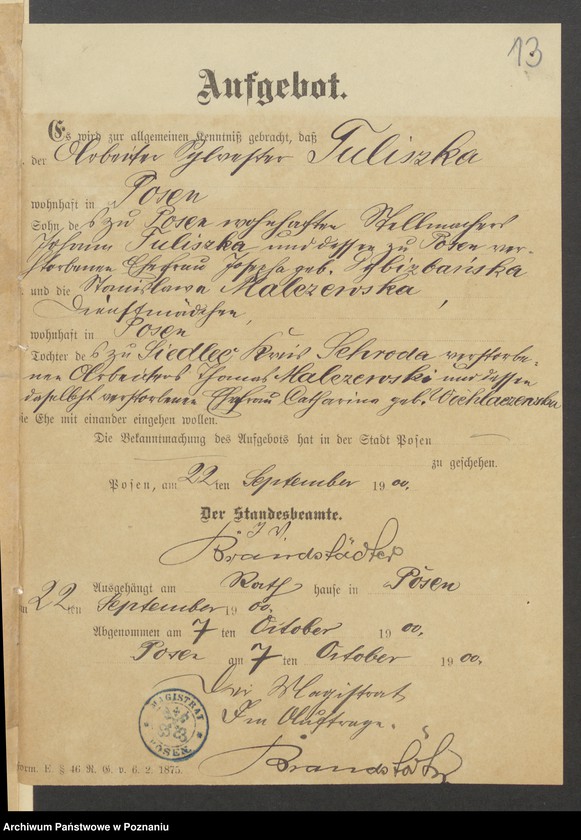 13
Aufgebot.
Es wird zur allgemeinen Kenntniß gebracht, daß
der Arbeiter Sylvester Tuliszka
wohnhaft in Posen
Sohn des zu Posen wohnhaften Stellmachers
Johann Tuliszka und dessen zu Posen ver-
storbenen Ehefrau Josepha geb.
und die Stanislawa Malczewska,
Dienstmädchen,
wohnhaft in Posen
Tochter des zu Siedlec Kreis Schroda verstorbe-
nen Arbeiters Thomas Malczewski und dessen
daselbst verstorbenen Ehefrau Catharina geb.
die Ehe mit einander eingehen wollen.
Die Bekanntmachung des Aufgebots hat in der Stadt Posen
zu geschehen.
Posen, am 22ten September 1900.
Der Standesbeamte.
I V
Brandstädter
Ausgehängt am Rathhause in Posen
am 22ten September 1900.
Abgenommen am 7ten October 1900.
Posen am 7ten October 1900.
Der Magistrat
Im Auftrage.
Brandstädter
MAGISTRAT
POSEN
Form. E. § 46 R. G. v. 6. 2. 1875.
Archiwum Państwowe w Poznaniu